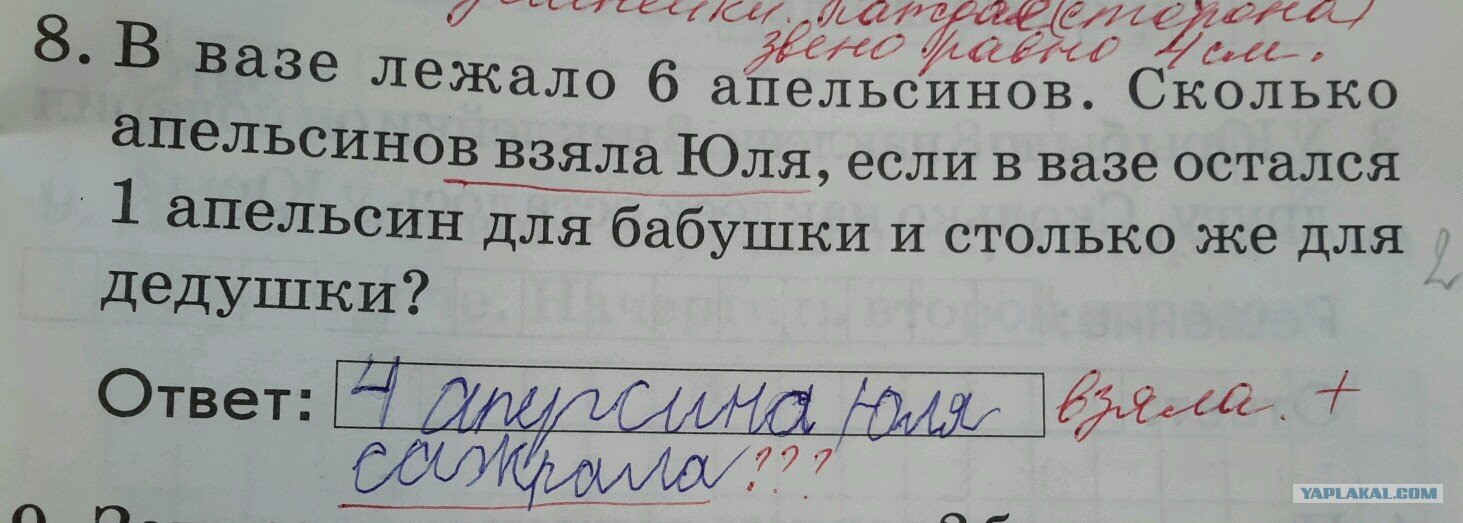 каждая (сторона)
звено равно 4 см.
8. В вазе лежало 6 апельсинов. Сколько
апельсинов взяла Юля, если в вазе остался
1 апельсин для бабушки и столько же для
дедушки?
2
Ответ: 4 апурсина Юля взяла. +
сажрала ???
YAPLAKAL.COM